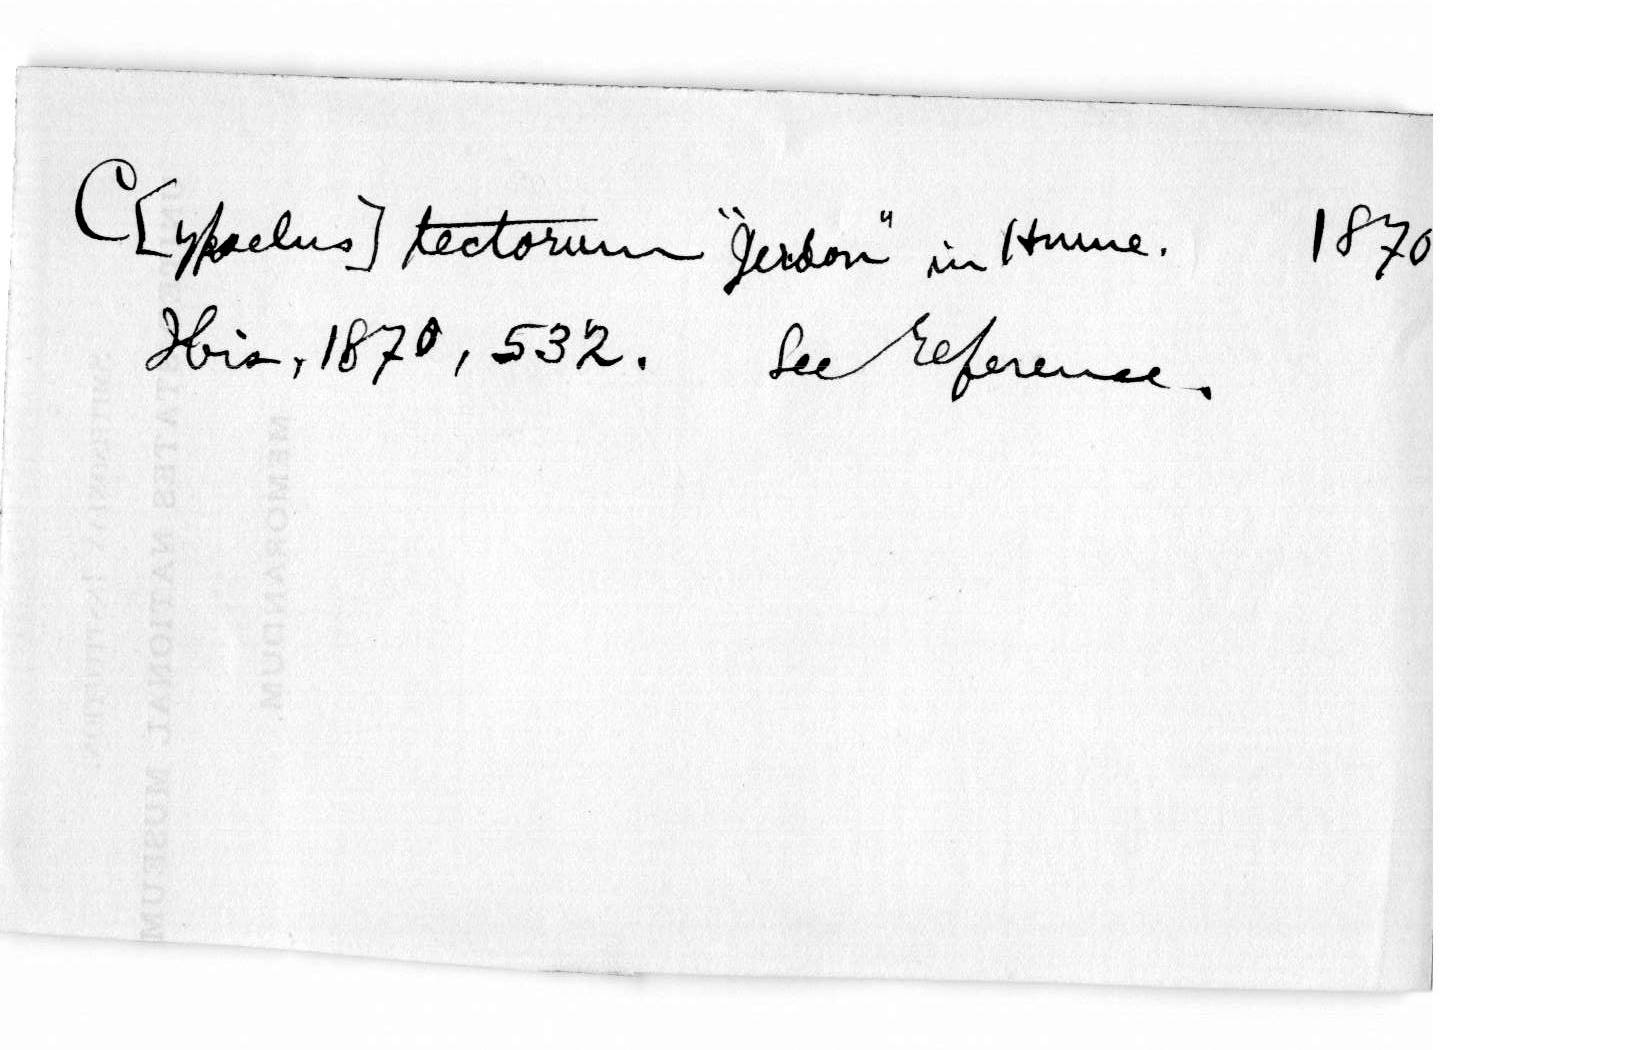 C[ypselus] tectorum "Jerdon" in Hume. 1870
Ibis, 1870, 532. See reference.
SMITHSONIAN INSTITUTION.
UNITED STATES NATIONAL MUSEUM
MEMORANDUM.